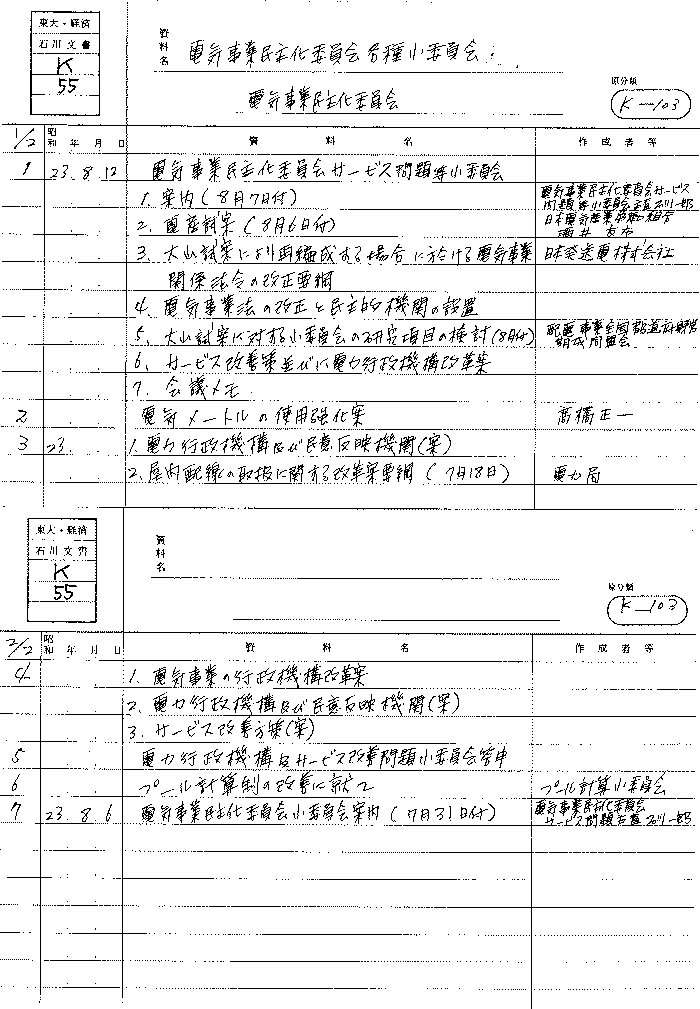 東大・経済
石川文書
K
55
資料名
電気事業民主化委員会各種小委員会:
電気事業民主化委員会
原分類
K-103
1/2 昭和 年 月 日 資料名 作成者等
1 23. 8. 12 電気事業民主化委員会サービス問題等小委員会
1. 案内(8月7日付) 電気事業民主化委員会サービス
問題等小委員会 石川一郎
2. 電産試案(8月6日付) 日本電気産業労働組合
3. 大山試案により再編成する場合に於ける電気事業 日本発送電株式会社
関係法令の改正要綱
4. 電気事業法の改正と民主的機関の設置
5. 大山試案に対する小委員会の研究項目の検討(8月付) 配電事業全国都道府県営
期成同盟会
6. サービス改善策並びに電力行政機構改革案
7. 会議メモ
2 電気メートルの使用強化案 高橋正一
3 23. . 1. 電力行政機構及び民意反映機関(案)
2. 屋内配線の取扱に関する改革案要綱(7月18日) 電力局
東大・経済
石川文書
K
55
資料名
原分類
K-103
2/2 昭和 年 月 日 資料名 作成者等
4 1. 電気事業の行政機構改革案
2. 電力行政機構及び民意反映機関(案)
3. サービス改善方策(案)
5 電力行政機構及サービス改善問題小委員会答申
6 プール計算制の改善に就て プール計算小委員会
7 23. 8. 6 電気事業民主化委員会小委員会案内(7月31日付) 電気事業民主化委員会
サービス問題 石川一郎